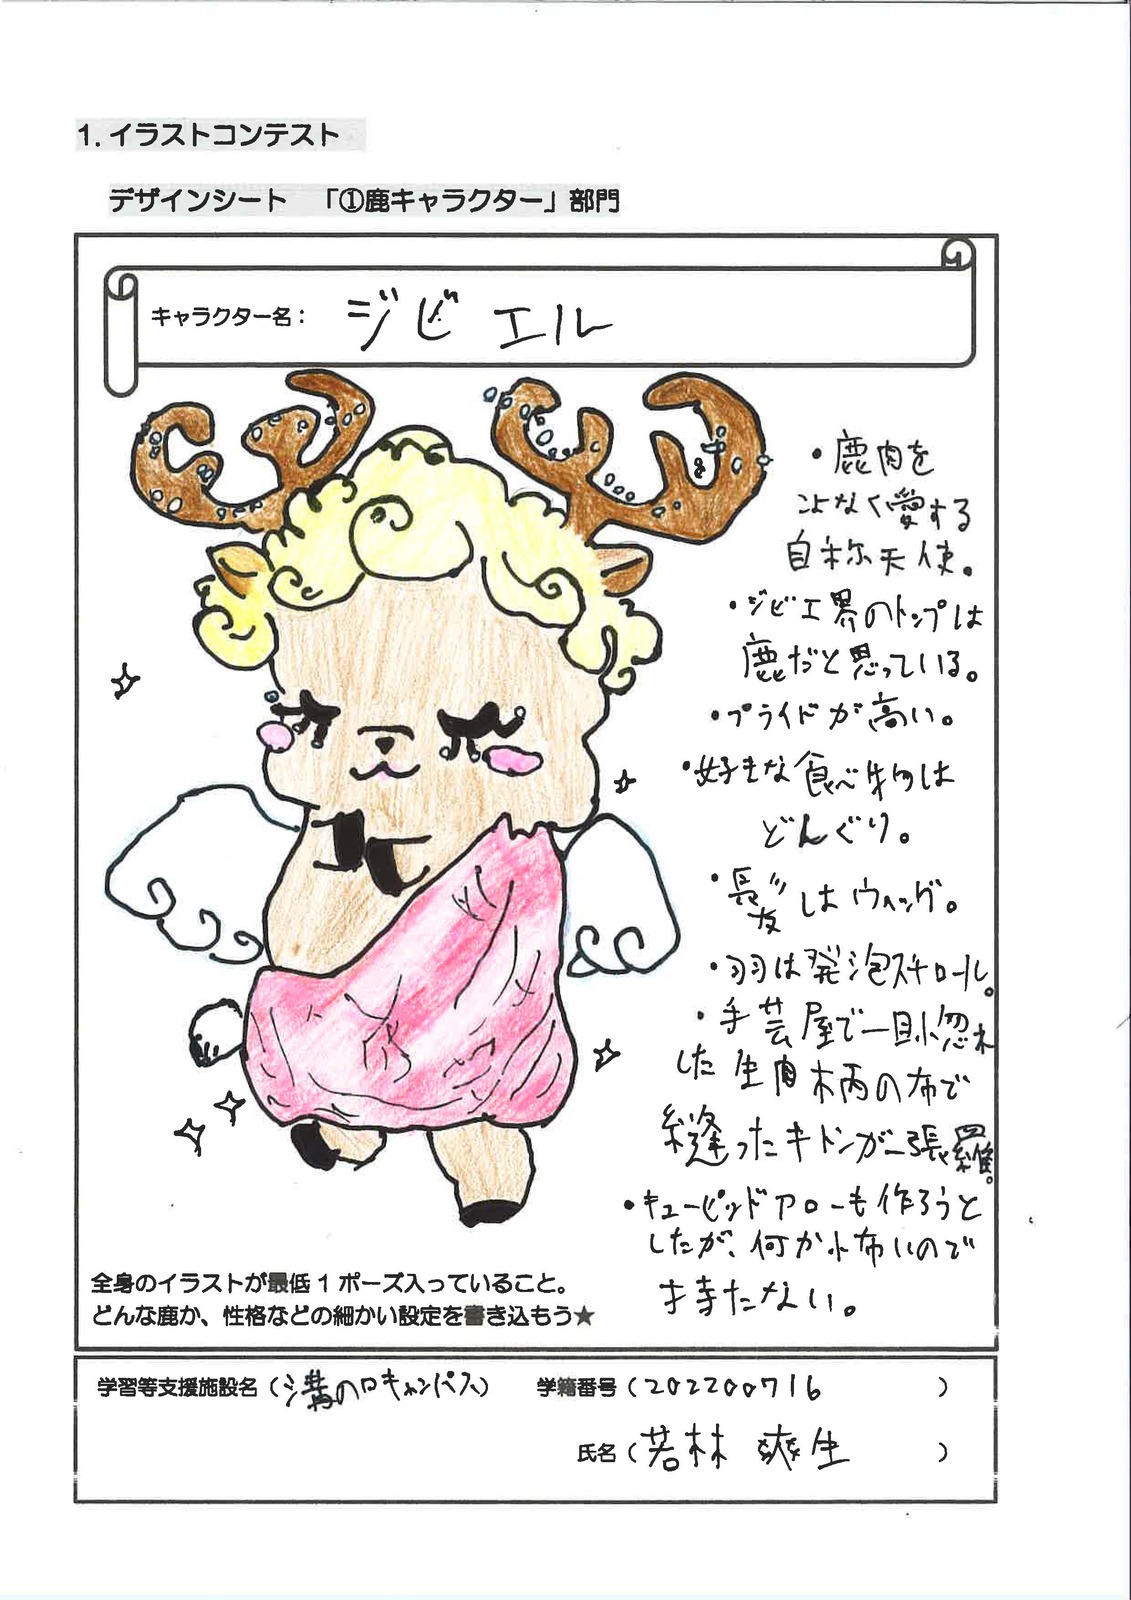 1. イラストコンテスト
デザインシート 「①鹿キャラクター」部門
キャラクター名： ジビエル
・鹿肉を
こよなく愛する
自称天使。
・ジビエ界のトップは
鹿だと思っている。
・プライドが高い。
・好きな食べ物は
どんぐり。
・髪はウィッグ。
・羽は発泡スチロール。
・手芸屋で一目惚れ
した生肉柄の布で
縫ったキトンが一張羅。
・キューピッドアローも作ろうと
したが、何か怖いので
持たない。
全身のイラストが最低1ポーズ入っていること。
どんな鹿か、性格などの細かい設定を書き込もう★
学習等支援施設名（溝の口キャンパス） 学籍番号（202200716 ）
氏名（若林 爽生 ）